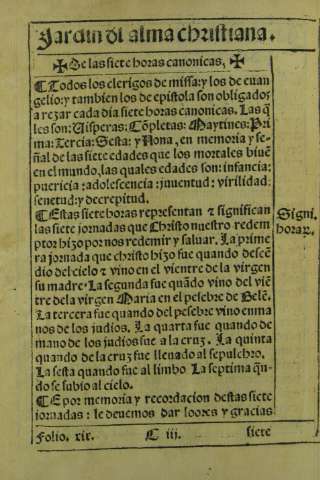 Jardin dl alma christiana.
✠De las siete horas canonicas, ✠
¶Todos los clerigos de missa: y los de euan
gelio: y tambien los de epistola son obligados
a rezar cada dia siete horas canonicas. Las q̃
les son: Uisperas: Cõpletas: Maytines: Pri
ma: Tercia: Sesta: y Nona, en memoria y se-
ñal de las siete edades que los mortales biuẽ
en el mundo, las quales edades son: infancia:
puericia: adolescencia: juuentud: virilidad:
senetud: y decrepitud.
¶Estas siete horas representan ⁊ significan
las siete jornadas que Christo nuestro redem
ptor hizo por nos redemir y saluar. La prime
ra jornada que christo hizo fue quando descẽ
dio del cielo ⁊ vino en el vientre de la virgen
su madre. La segunda fue quãdo vino del viẽ
tre de la virgen Maria en el pesebre de Belẽ.
La tercera fue quando del pesebre vino en ma
nos de los judios. La quarta fue quando de
mano de los judios fue a la cruz. La quinta
quando de la cruz fue lleuado al sepulchro.
La sesta quando fue al limbo La septima q̃n-
do se subio al cielo.
¶E por memoria y recordacion destas siete
jornadas: le deuemos dar loores y gracias
Signi.
horaꝝ.
Folio. xix. C iij. siete